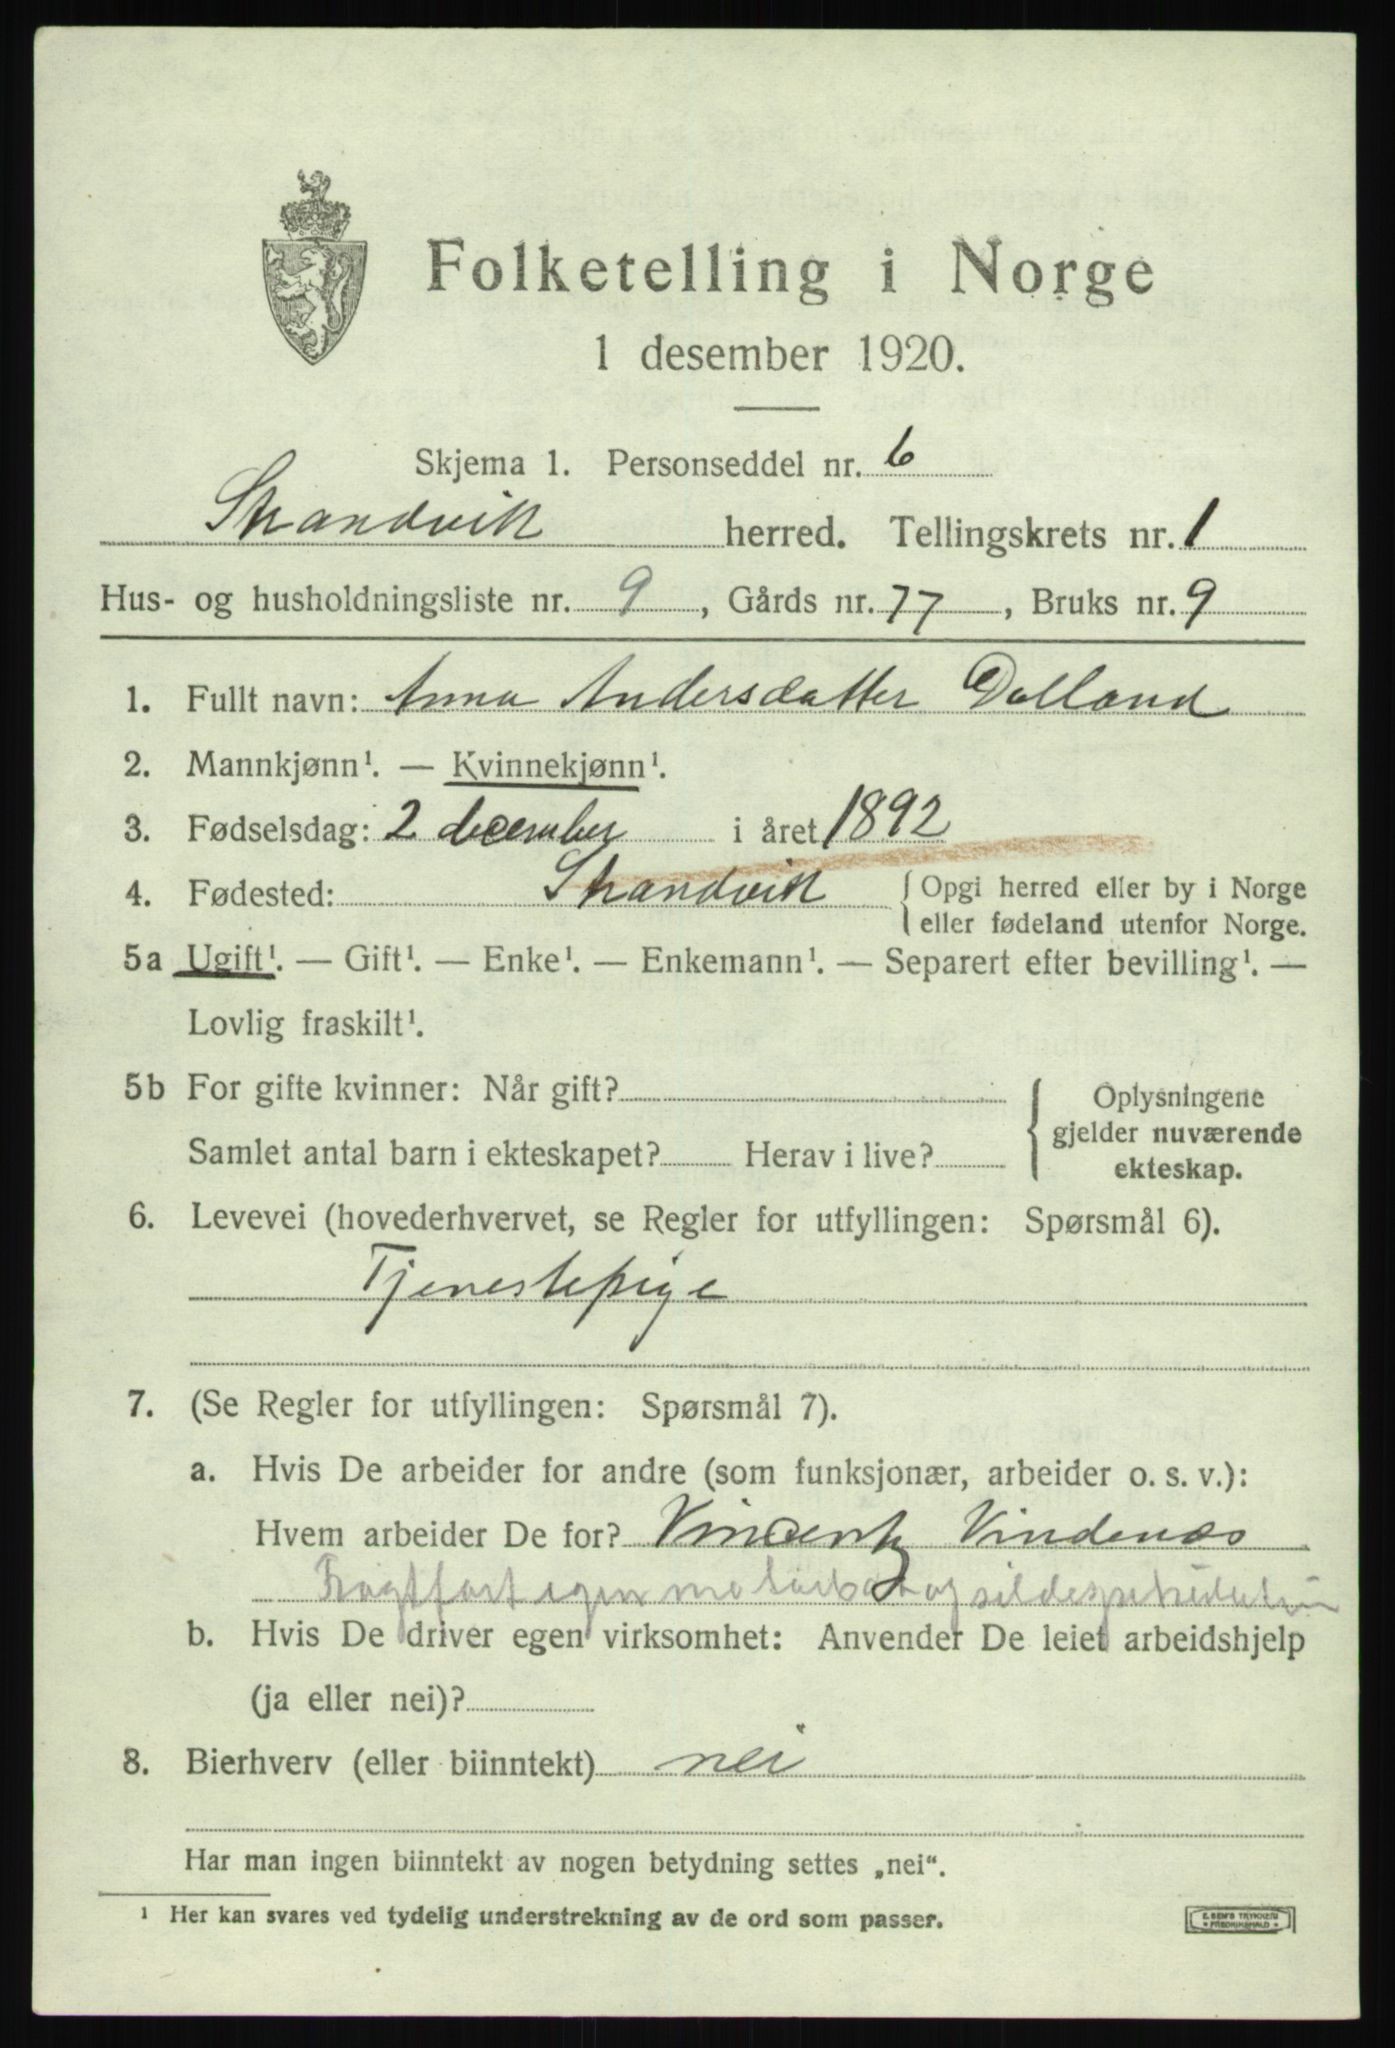 Folketelling i Norge
1 desember 1920.
Skjema 1. Personseddel nr. 6
Strandvik herred. Tellingskrets nr. 1
Hus- og husholdningsliste nr. 9, Gårds nr. 77, Bruks nr. 9
1. Fullt navn: Anna Andersdatter Dalland
2. Mannkjønn¹. — Kvinnekjønn¹.
3. Fødselsdag: 2 december i året 1892
4. Fødested: Strandvik { Opgi herred eller by i Norge
eller fødeland utenfor Norge.
5a Ugift¹. — Gift¹. — Enke¹. — Enkemann¹. — Separert efter bevilling¹. —
Lovlig fraskilt¹.
5b For gifte kvinner: Når gift? { Oplysningene
gjelder nuværende
Samlet antal barn i ekteskapet? Herav i live?
ekteskap.
6. Levevei (hovederhvervet, se Regler for utfyllingen: Spørsmål 6).
Tjenestepige
7. (Se Regler for utfyllingen: Spørsmål 7).
a. Hvis De arbeider for andre (som funksjonær, arbeider o. s. v.):
Hvem arbeider De for? Vincentz Vindenæs
Fragtfart egen og
b. Hvis De driver egen virksomhet: Anvender De leiet arbeidshjelp
(ja eller nei)?
8. Bierhverv (eller biinntekt) nei
Har man ingen biinntekt av nogen betydning settes „nei“.
¹ Her kan svares ved tydelig understrekning av de ord som passer.
E. SEM'S TRYKKERI
FREDRIKSHALD